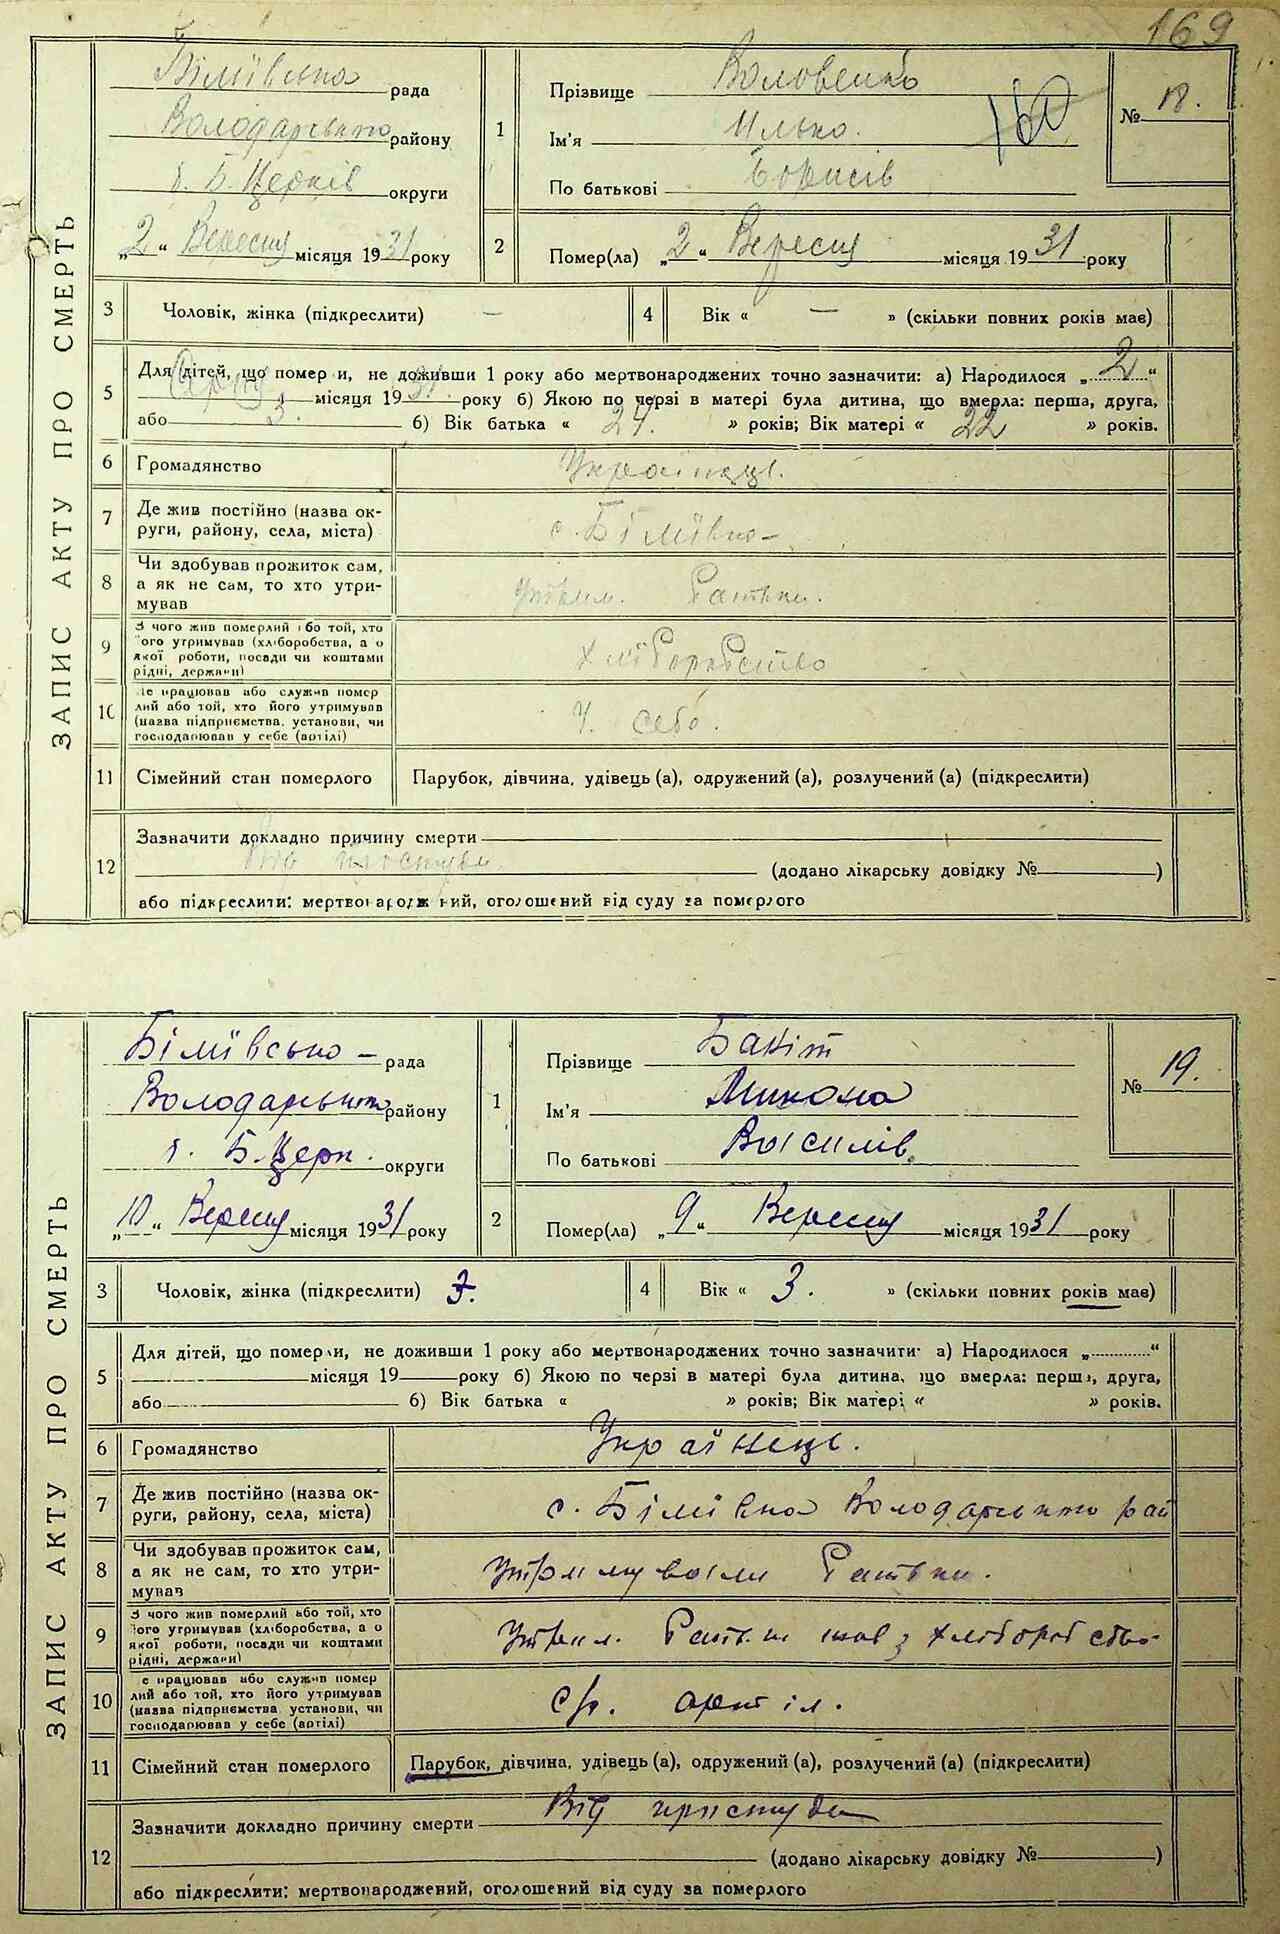 169
ЗАПИС АКТУ ПРО СМЕРТЬ
Біліївська рада
Володарського району
Б. Церків округи
„2“ Вересня місяця 1931 року
1
Прізвище Воловенко
Ім'я Илько.
По батькові Борисів
160
№ 18.
2
Помер(ла) „2“ Вересня місяця 1931 року
3 Чоловік, жінка (підкреслити) —
4 Вік « — » (скільки повних років має)
5 Для дітей, що померли, не доживши 1 року або мертвонароджених точно зазначити: а) Народилося „2“
Серпня місяця 1931 року б) Якою по черзі в матері була дитина, що вмерла: перша, друга,
або 3. б) Вік батька « 24. » років; Вік матері « 22 » років.
6 Громадянство Українець.
7 Де жив постійно (назва ок-
руги, району, села, міста) с. Біліївка
8 Чи здобував прожиток сам,
а як не сам, то хто утри-
мував
Утрим. Батьки.
9 З чого жив померлий або той, хто
його утримував (хліборобства, а о
якої роботи, посади чи коштами
рідні, держави)
Хліборобство
10 Де працював або служив помер
лий або той, хто його утримував
(назва підприємства, установи, чи
господарював у себе (артілі)
У себе.
11 Сімейний стан померлого Парубок, дівчина, удівець (а), одружений (а), розлучений (а) (підкреслити)
12 Зазначити докладно причину смерти
Від простуди (додано лікарську довідку № )
або підкреслити: мертвонароджений, оголошений від суду за померлого
ЗАПИС АКТУ ПРО СМЕРТЬ
Біліївсько рада
Володарського району
Б. Церк. округи
„10“ Вересня місяця 1931 року
1
Прізвище
Ім'я Микола
По батькові Василів.
№ 19.
2
Помер(ла) „9“ Вересня місяця 1931 року
3 Чоловік, жінка (підкреслити) 3.
4 Вік « 3. » (скільки повних років має)
5 Для дітей, що померли, не доживши 1 року або мертвонароджених точно зазначити: а) Народилося „ “
місяця 19 року б) Якою по черзі в матері була дитина, що вмерла: перша, друга,
або б) Вік батька « » років; Вік матері « » років.
6 Громадянство Українець.
7 Де жив постійно (назва ок-
руги, району, села, міста) с. Біліївка Володарського рай
8 Чи здобував прожиток сам,
а як не сам, то хто утри-
мував
Утримували Батьки.
9 З чого жив померлий або той, хто
його утримував (хліборобства, а о
якої роботи, посади чи коштами
рідні, держави)
Утрим. Батьки з хліборобства
10 е працював або служив помер
лий або той, хто його утримував
(назва підприємства, установи, чи
господарював у себе (артілі)
с/г. артіл.
11 Сімейний стан померлого Парубок, дівчина, удівець (а), одружений (а), розлучений (а) (підкреслити)
12 Зазначити докладно причину смерти Від простуди
(додано лікарську довідку № )
або підкреслити: мертвонароджений, оголошений від суду за померлого